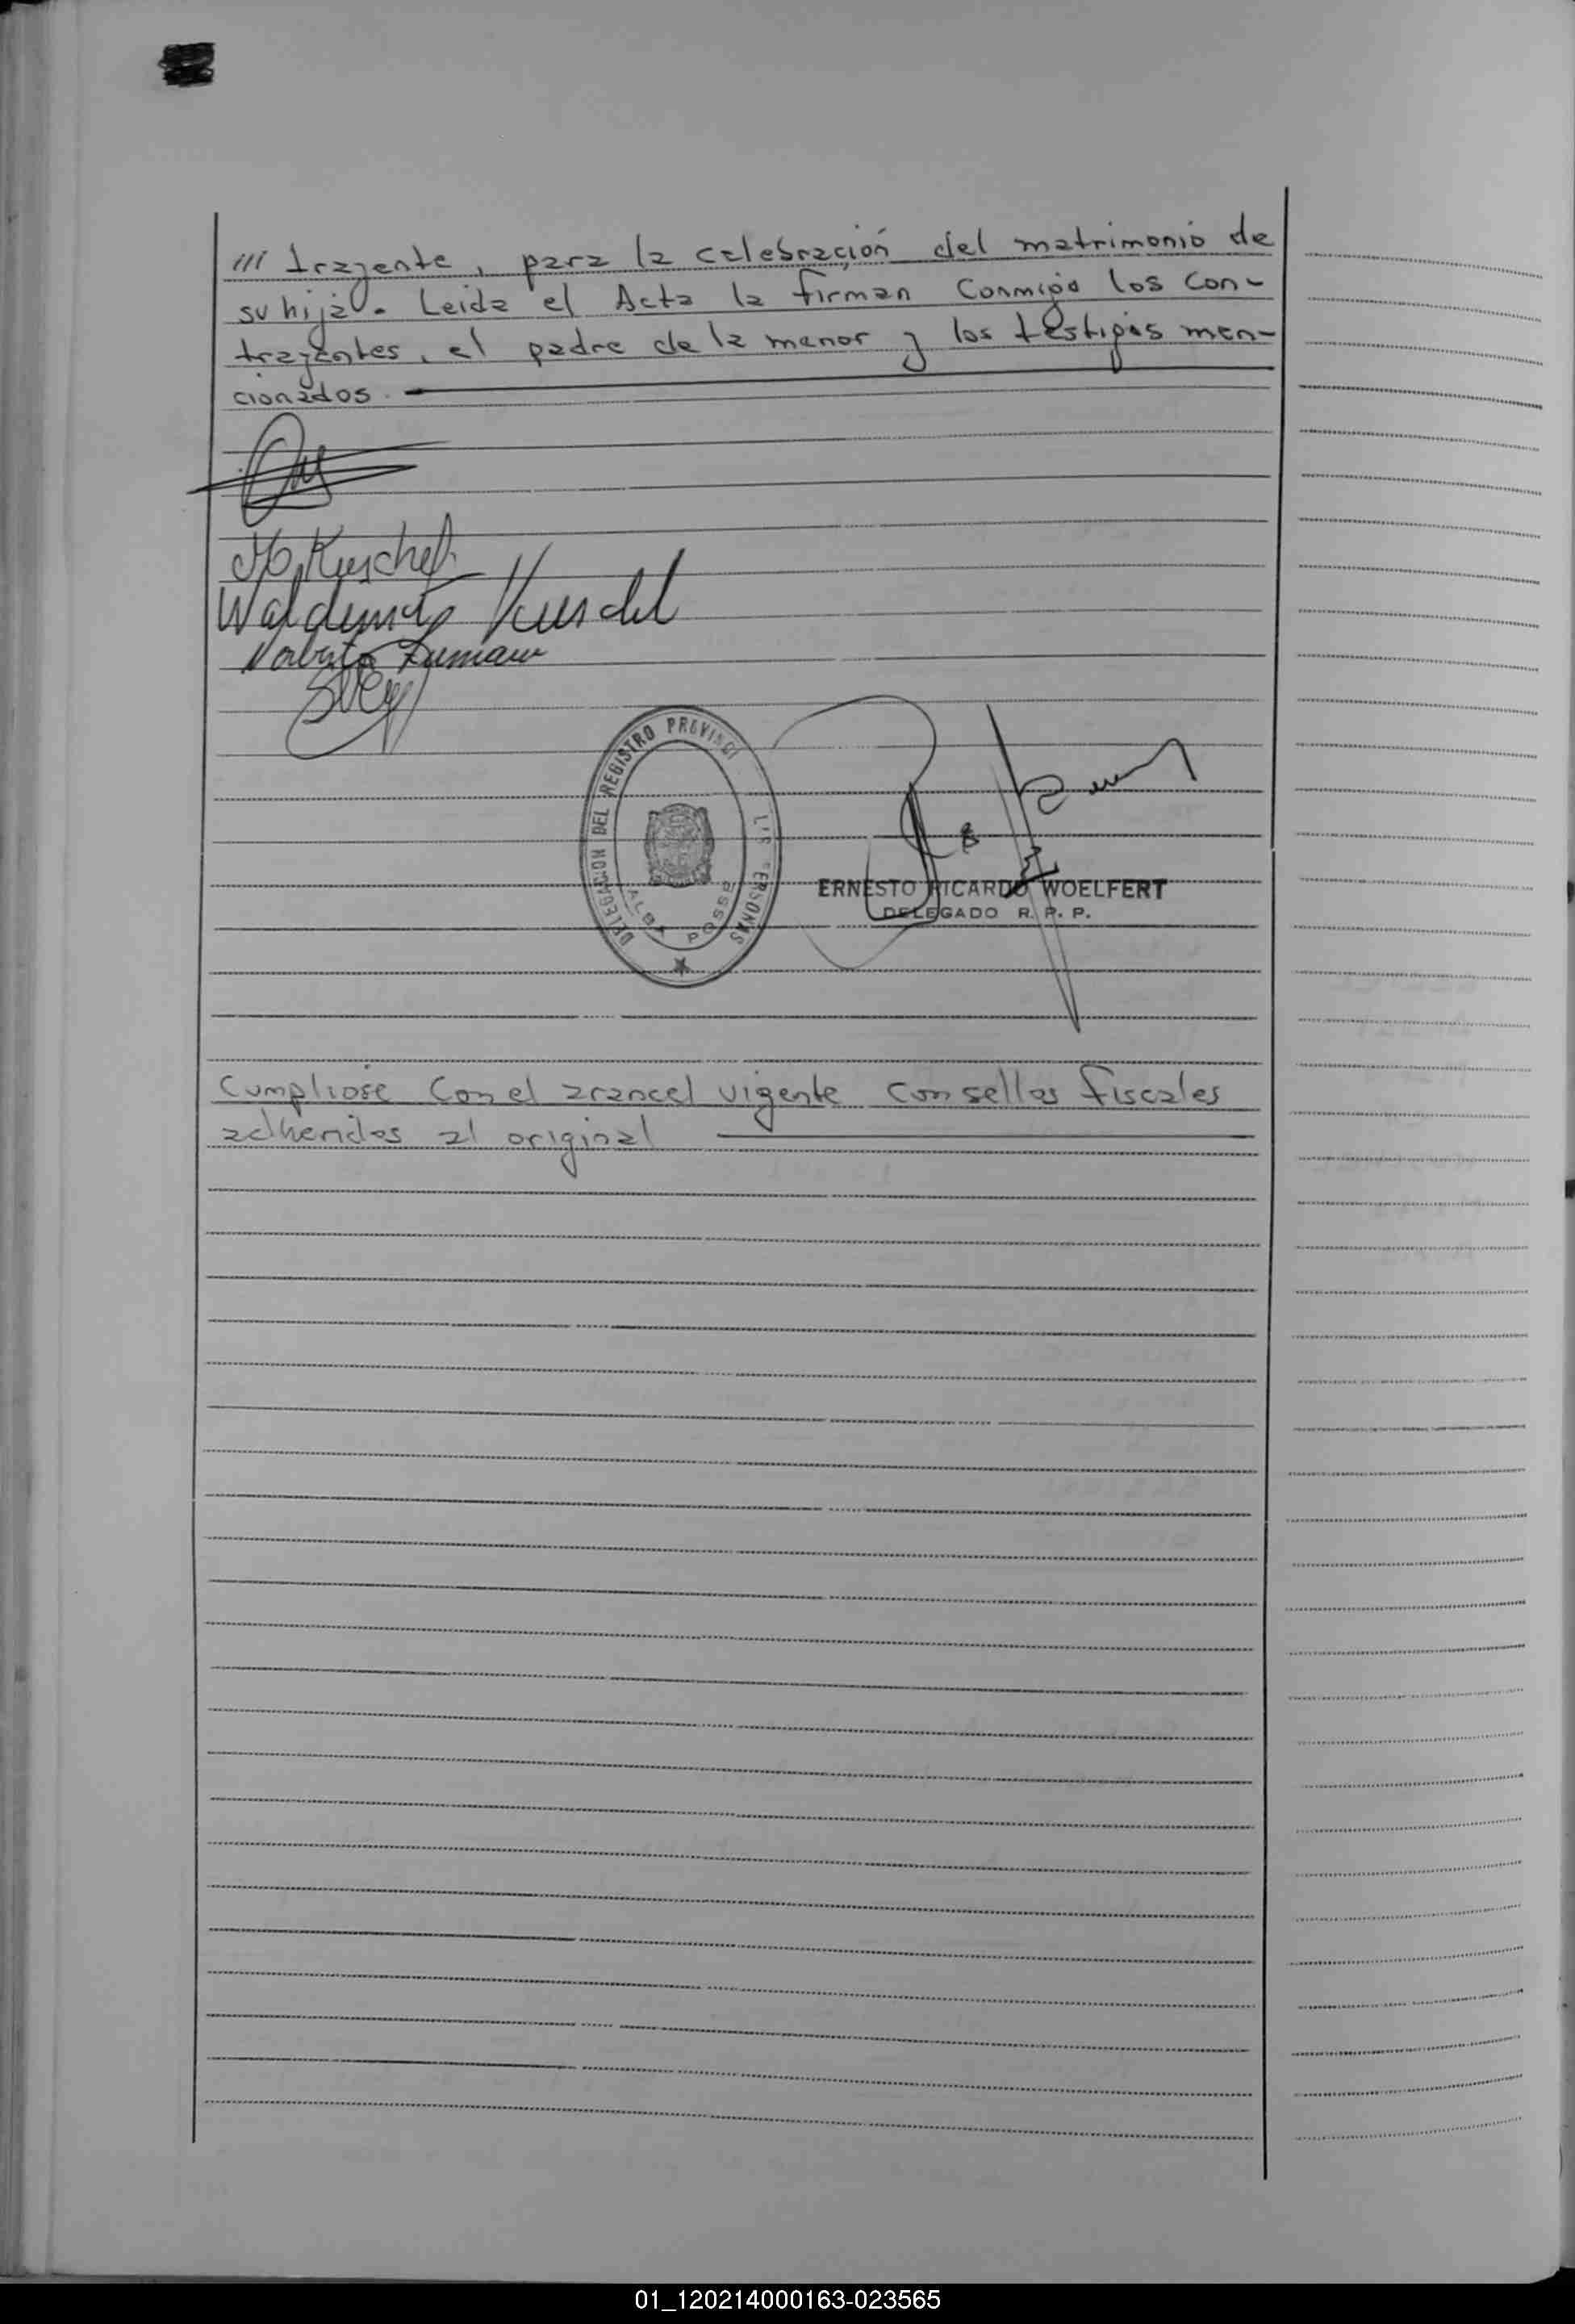 /// trayente, para la celebración del matrimonio de
su hija. Leida el Acta la firman conmigo los con-
trayentes, el padre de la menor y los testigos men-
cionados.
Kuschel
Waldemar Kuschel
Norberto
DELEGACION DEL REGISTRO PROVINCI L'S ERSONAS
ALBA POSSE
ERNESTO RICARDO WOELFERT
DELEGADO R. P. P.
Cumpliose con el arancel vigente con sellos fiscales
adheridos al original
01_120214000163-023565